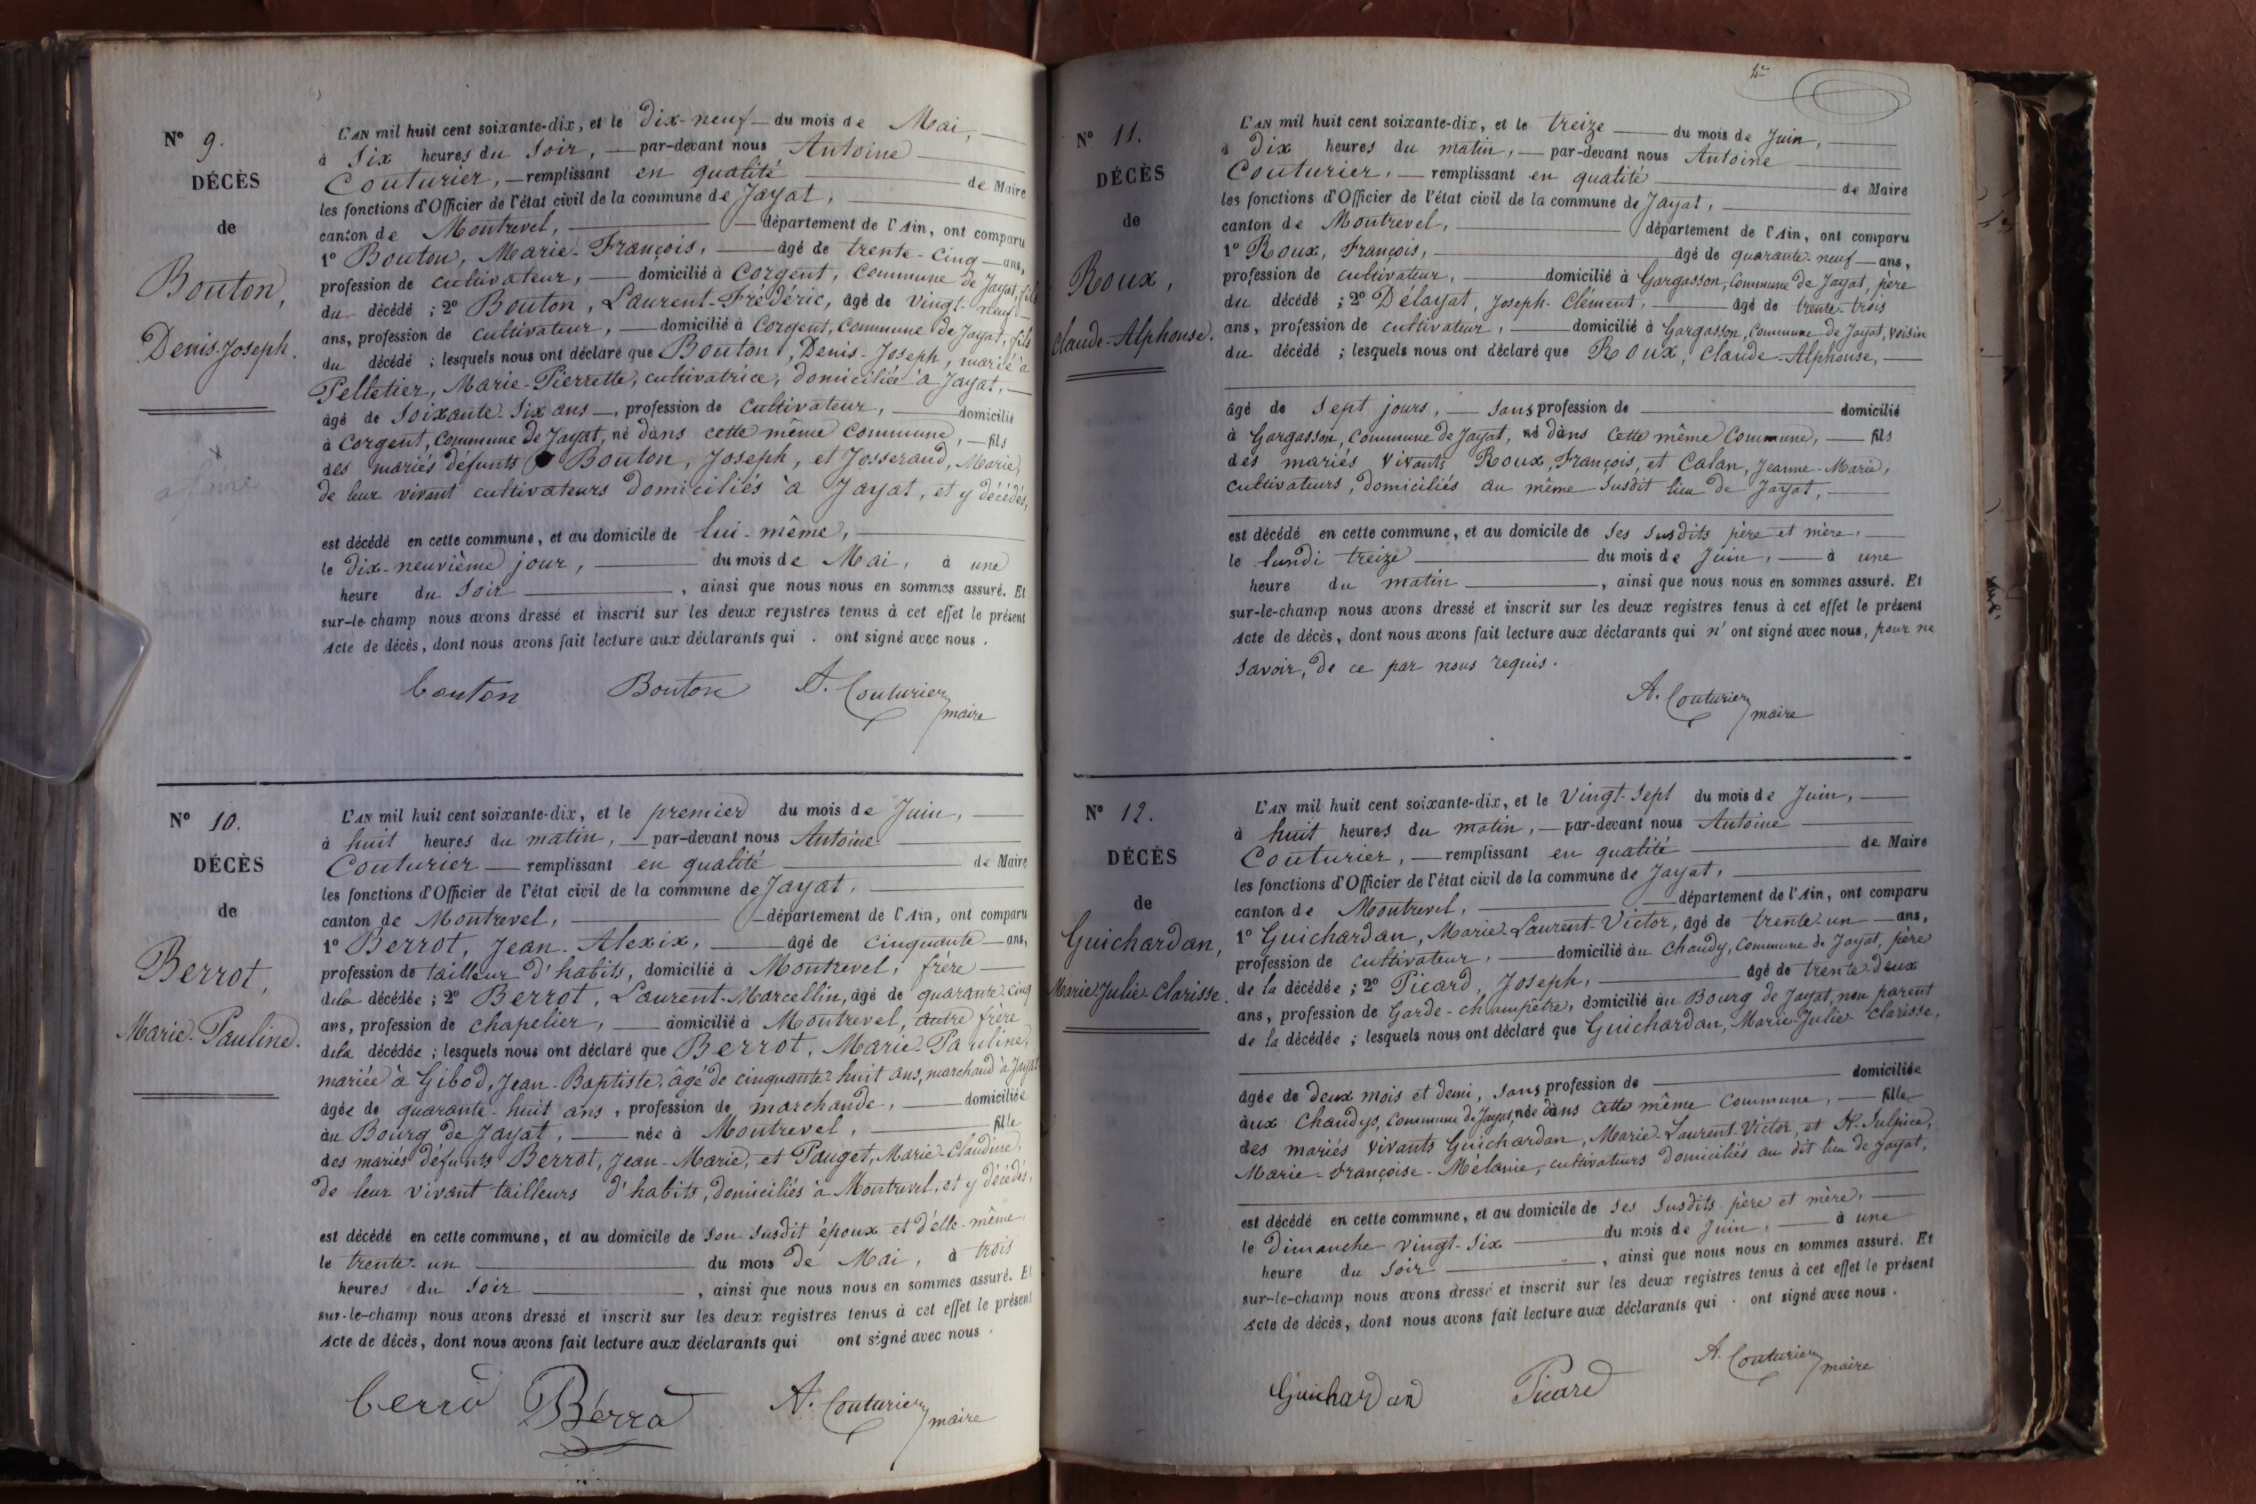 N° 9.
DÉCÈS
de
Bouton,
Denis-Joseph.
L'AN mil huit cent soixante-dix, et le dix-neuf du mois de Mai,
à Six heures du Soir, par-devant nous Antoine
Couturier, remplissant en qualité de Maire
les fonctions d'Officier de l'état civil de la commune de Jayat,
canton de Montrevel, département de l'Ain, ont comparu
1° Bouton, Marie-François, âgé de trente-cinq ans,
profession de cultivateur, domicilié à Corgent, Commune de Jayat, fils
du décédé ; 2° Bouton, Laurent-Frédéric, âgé de vingt-neuf
ans, profession de cultivateur, domicilié à Corgent, Commune de Jayat, fils
du décédé ; lesquels nous ont déclaré que Bouton, Denis-Joseph, marié à
Pelletier, Marie-Pierrette, cultivatrice, domiciliée à Jayat,
âgé de Soixante-Six ans, profession de cultivateur, domicilié
à Corgent, Commune de Jayat, né dans cette même Commune, fils
des mariés défunts Bouton, Joseph, et Josserand, Marie,
de leur vivant cultivateurs domiciliés à Jayat, et y décédés,
est décédé en cette commune, et au domicile de lui-même,
le dix-neuvième jour, du mois de Mai, à une
heure du Soir, ainsi que nous nous en sommes assuré. Et
sur-le-champ nous avons dressé et inscrit sur les deux registres tenus à cet effet le présent
Acte de décès, dont nous avons fait lecture aux déclarants qui ont signé avec nous.
bouton Bouton A. Couturier
maire
N° 10.
DÉCÈS
de
Berrot,
Marie-Pauline.
L'AN mil huit cent soixante-dix, et le premier du mois de Juin,
à huit heures du matin, par-devant nous Antoine
Couturier remplissant en qualité de Maire
les fonctions d'Officier de l'état civil de la commune de Jayat,
canton de Montrevel, département de l'Ain, ont comparu
1° Berrot, Jean-Alexix, âgé de cinquante ans,
profession de tailleur d'habits, domicilié à Montrevel, frère
de la décédée ; 2° Berrot, Laurent-Marcellin, âgé de quarante-cinq
ans, profession de chapelier, domicilié à Montrevel, autre frère
de la décédée ; lesquels nous ont déclaré que Berrot, Marie-Pauline,
mariée à Gibod, Jean-Baptiste, âgé de cinquante-huit ans, marchand à Jayat
âgée de quarante-huit ans, profession de marchande, domiciliée
au Bourg de Jayat, née à Montrevel, fille
des mariés défunts Berrot, Jean-Marie, et Pauget, Marie-Claudine,
de leur vivant tailleurs d'habits, domiciliés à Montrevel, et y décédés,
est décédé en cette commune, et au domicile de Son Susdit époux et d'elle-même
le trente-un du mois de Mai, à trois
heures du Soir, ainsi que nous nous en sommes assuré. Et
sur-le-champ nous avons dressé et inscrit sur les deux registres tenus à cet effet le présent
Acte de décès, dont nous avons fait lecture aux déclarants qui ont signé avec nous.
berro Bérro A. Couturier
maire
N° 11.
DÉCÈS
de
Roux,
Claude-Alphonse.
L'AN mil huit cent soixante-dix, et le treize du mois de Juin,
à dix heures du matin, par-devant nous Antoine
Couturier, remplissant en qualité de Maire
les fonctions d'Officier de l'état civil de la commune de Jayat,
canton de Montrevel, département de l'Ain, ont comparu
1° Roux, François, âgé de quarante-neuf ans,
profession de cultivateur, domicilié à Gargasson, Commune de Jayat, père
du décédé ; 2° Délayat, Joseph-Clément, âgé de trente-trois
ans, profession de cultivateur, domicilié à Gargasson, Commune de Jayat, voisin
du décédé ; lesquels nous ont déclaré que Roux, Claude-Alphonse,
âgé de Sept jours, Sans profession de domicilié
à Gargasson, Commune de Jayat, né dans Cette même Commune, fils
des mariés vivants Roux, François, et Calan, Jeanne-Marie,
cultivateurs, domiciliés au même Susdit lieu de Jayat,
est décédé en cette commune, et au domicile de Ses Susdits père et mère,
le lundi treize du mois de Juin, à une
heure du matin, ainsi que nous nous en sommes assuré. Et
sur-le-champ nous avons dressé et inscrit sur les deux registres tenus à cet effet le présent
Acte de décès, dont nous avons fait lecture aux déclarants qui n'ont signé avec nous, pour ne
Savoir, de ce par nous requis.
A. Couturier
maire
N° 12.
DÉCÈS
de
Guichardan,
Marie Julie-Clarisse.
L'AN mil huit cent soixante-dix, et le Vingt-Sept du mois de Juin,
à huit heures du matin, par-devant nous Antoine
Couturier, remplissant en qualité de Maire
les fonctions d'Officier de l'état civil de la commune de Jayat,
canton de Montrevel, département de l'Ain, ont comparu
1° Guichardan, Marie-Laurent-Victor, âgé de trente-un ans,
profession de cultivateur, domicilié au Chaudy, Commune de Jayat, père
de la décédée ; 2° Picard, Joseph, âgé de trente-deux
ans, profession de Garde-champêtre, domicilié au Bourg de Jayat, non parent
de la décédée ; lesquels nous ont déclaré que Guichardan, Marie-Julie-Clarisse,
âgée de deux mois et demi, Sans profession de domiciliée
aux Chaudys, Commune de Jayat, née dans cette même Commune, fille
des mariés vivants Guichardan, Marie-Laurent-Victor, et St Sulpice,
Marie-Françoise-Mélanie, cultivateurs domiciliés au dit lieu de Jayat,
est décédée en cette commune, et au domicile de Ses Susdits père et mère,
le dimanche vingt-six du mois de Juin, à une
heure du Soir, ainsi que nous nous en sommes assuré. Et
sur-le-champ nous avons dressé et inscrit sur les deux registres tenus à cet effet le présent
Acte de décès, dont nous avons fait lecture aux déclarants qui ont signé avec nous.
Guichardan Picard A. Couturier
maire